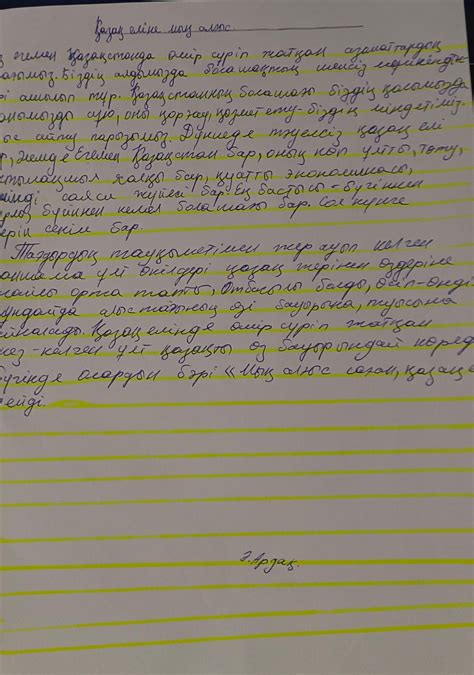 Қазақ еліне мың алғыс.
егемен Қазақстанда өмір сүріп жатқан азаматтардың
Біздің алдымызда болашақтың шексіз мүмкіндік-
ашылып тұр. Қазақстанның болашағы біздің қолымызда
оны қорғау, қызмет ету - біздің міндетіміз.
айту парызымыз. Дүниеде тәуелсіз қазақ елі
әлемде Егемен Қазақстан бар, оның көп ұлтты, тату,
халқы бар, қуатты экономикасы,
саяси жүйесі бар. Ең бастысы - бүгіннен
бүгіннен кемел болашағы бар. Сол күнге
сенім бар.
Тағдырдың тауқыметімен жер ауып келген
ұлт өкілдері қазақ жерінен өздеріне
орта тапты, Отбасылы болды, өсіп-өнді
алыстағының өзі бауырына, туысына
Қазақ елінде өмір сүріп жатқан
кез-келген ұлт қазақты өз бауырындай көреді
бүгінде олардың бәрі «Мың алғыс саған, қазақ
дейді.
Ардақ.